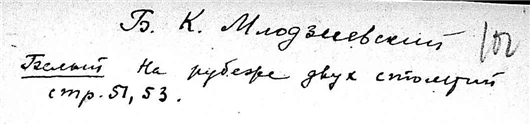 Б. К. Млодзиевский 102
Белый На рубеже двух столетий
стр. 51, 53.